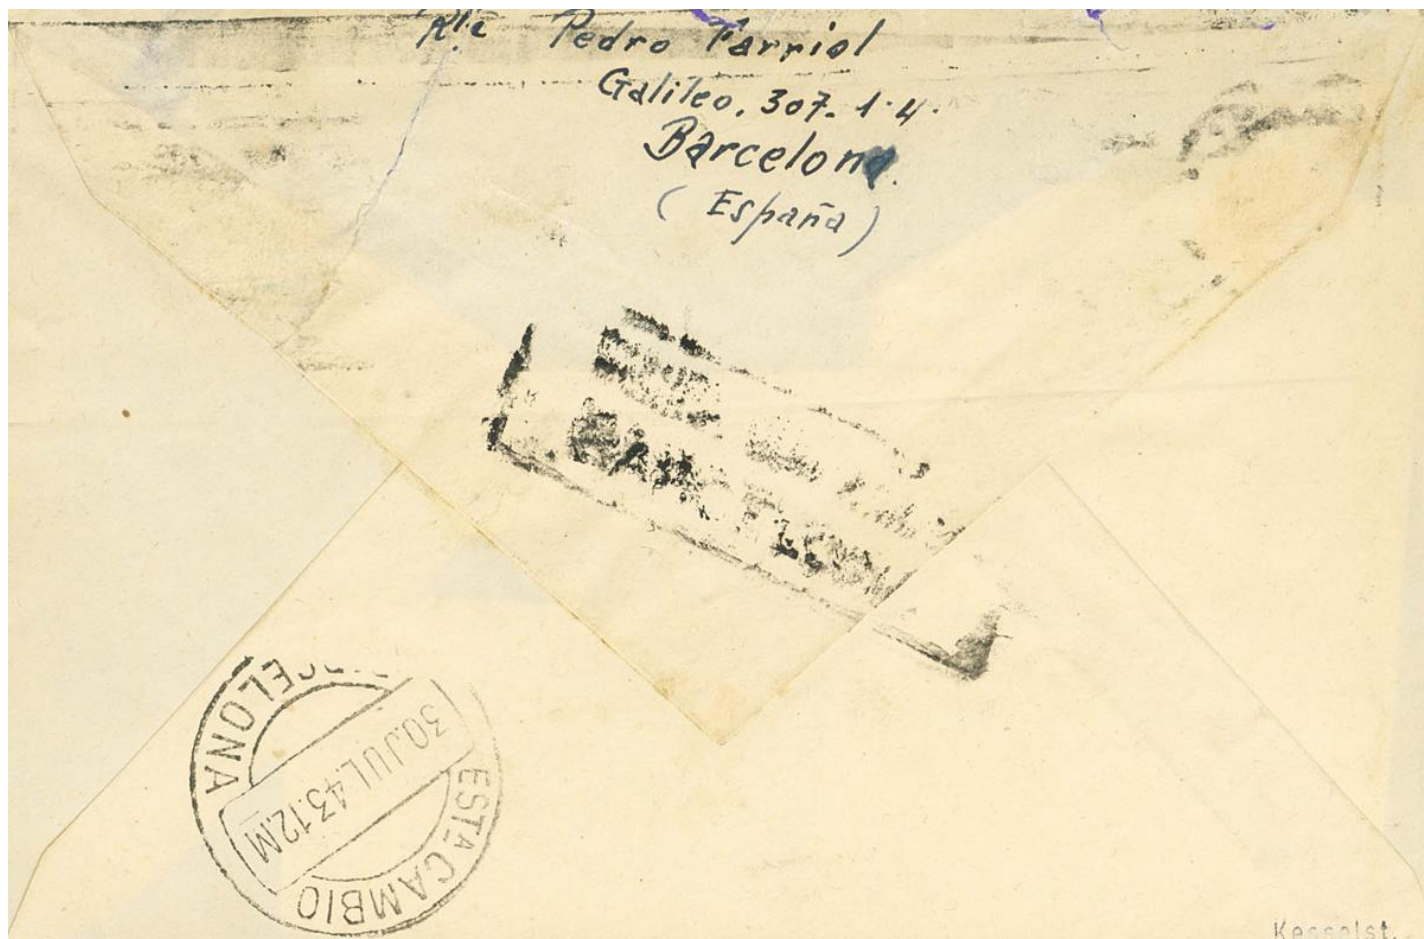 Rte Pedro Farriol
Galileo. 307. 1·4.
Barcelona
(España)
BARCELONA
BARCELONA
30.JUL.43.12.M
ESTA CAMBIO
Kesselst.